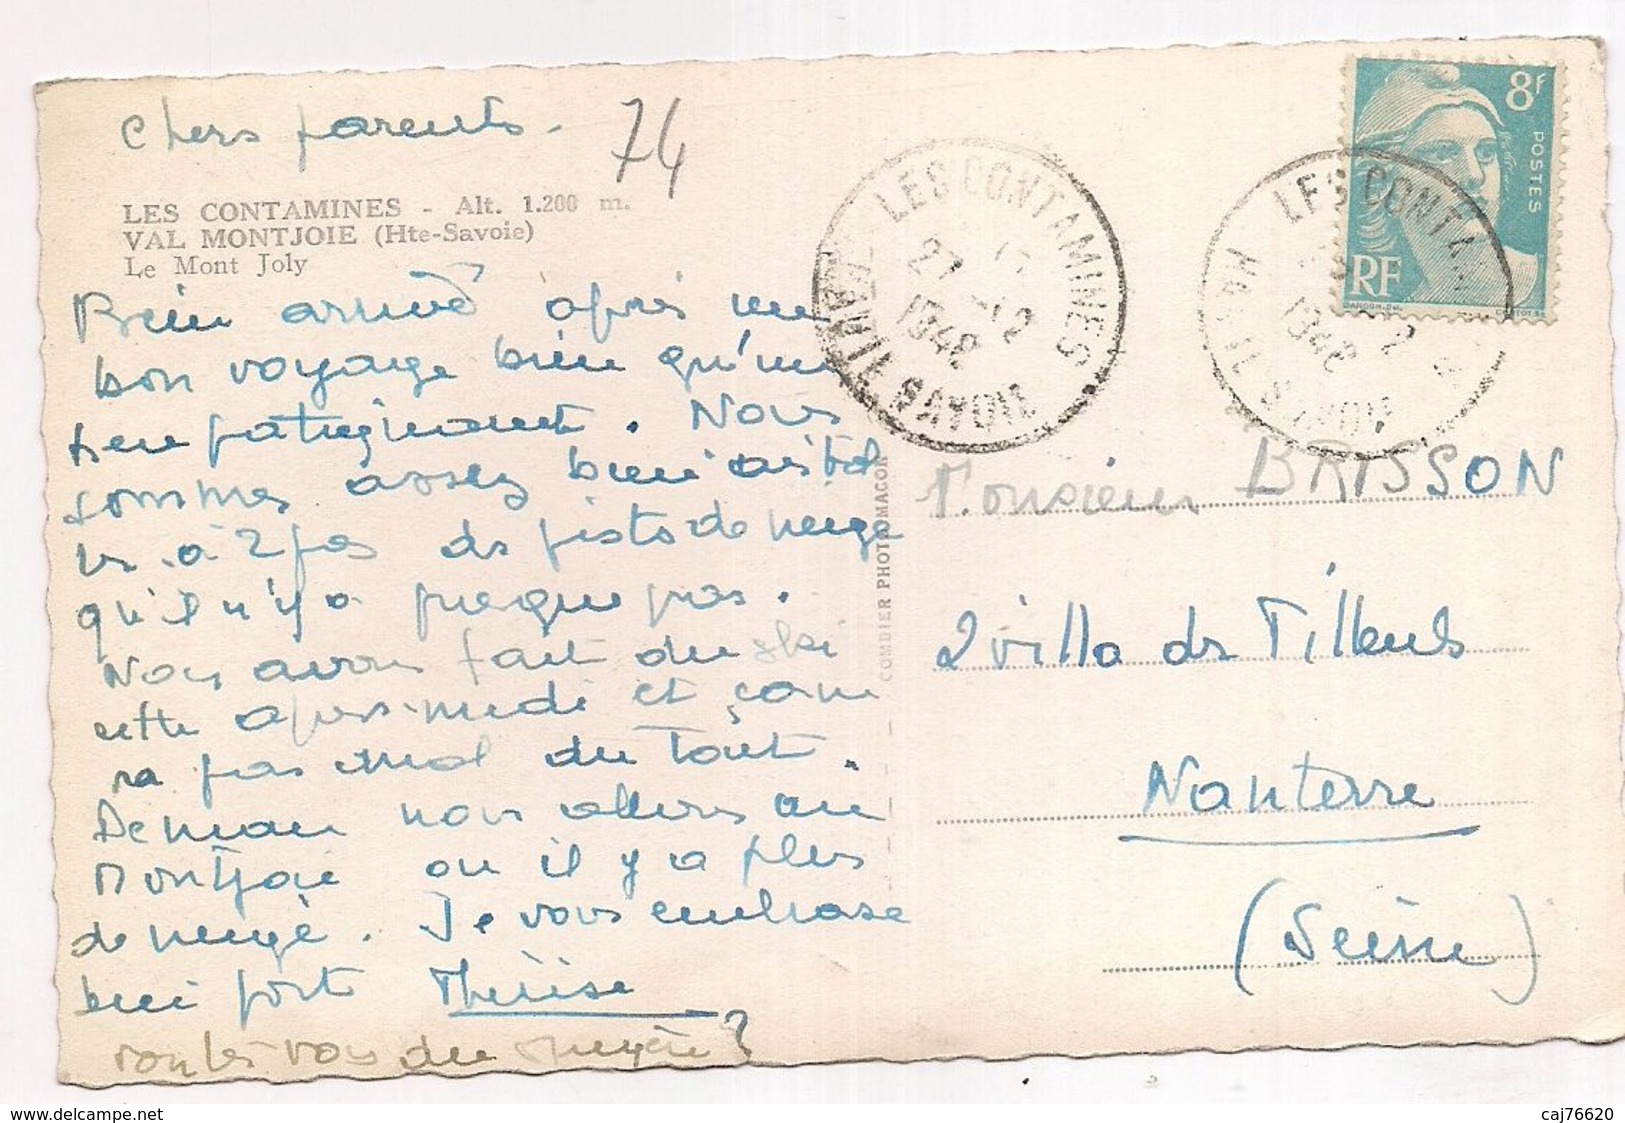 Chers parents.
74
LES CONTAMINES - Alt. 1.200 m.
VAL MONTJOIE (Hte-Savoie)
Le Mont Joly
Bien arrivé après un
bon voyage bien qu'un
peu fatiguant. Nous
sommes assez bien
à 2 pas de pists de neige
qu'il n'y a presque pas.
Nous avons fait du ski
cette après-midi et ça m
ra pas mal du tout.
Demain nous allons au
Montjoie ou il y a plus
de neige. Je vous embrasse
bien fort Thérèse
vous du
COMBIER PHOTO MACON
LES CONTAMINES
27 -12
1948
HAUTE SAVOIE
LES CONTAMINES
1948
8F
POSTES
RF
Monsieur BRISSON
2 villa ds Tilleuls
Nanterre
(Seine)
delcampe.net
caj76620